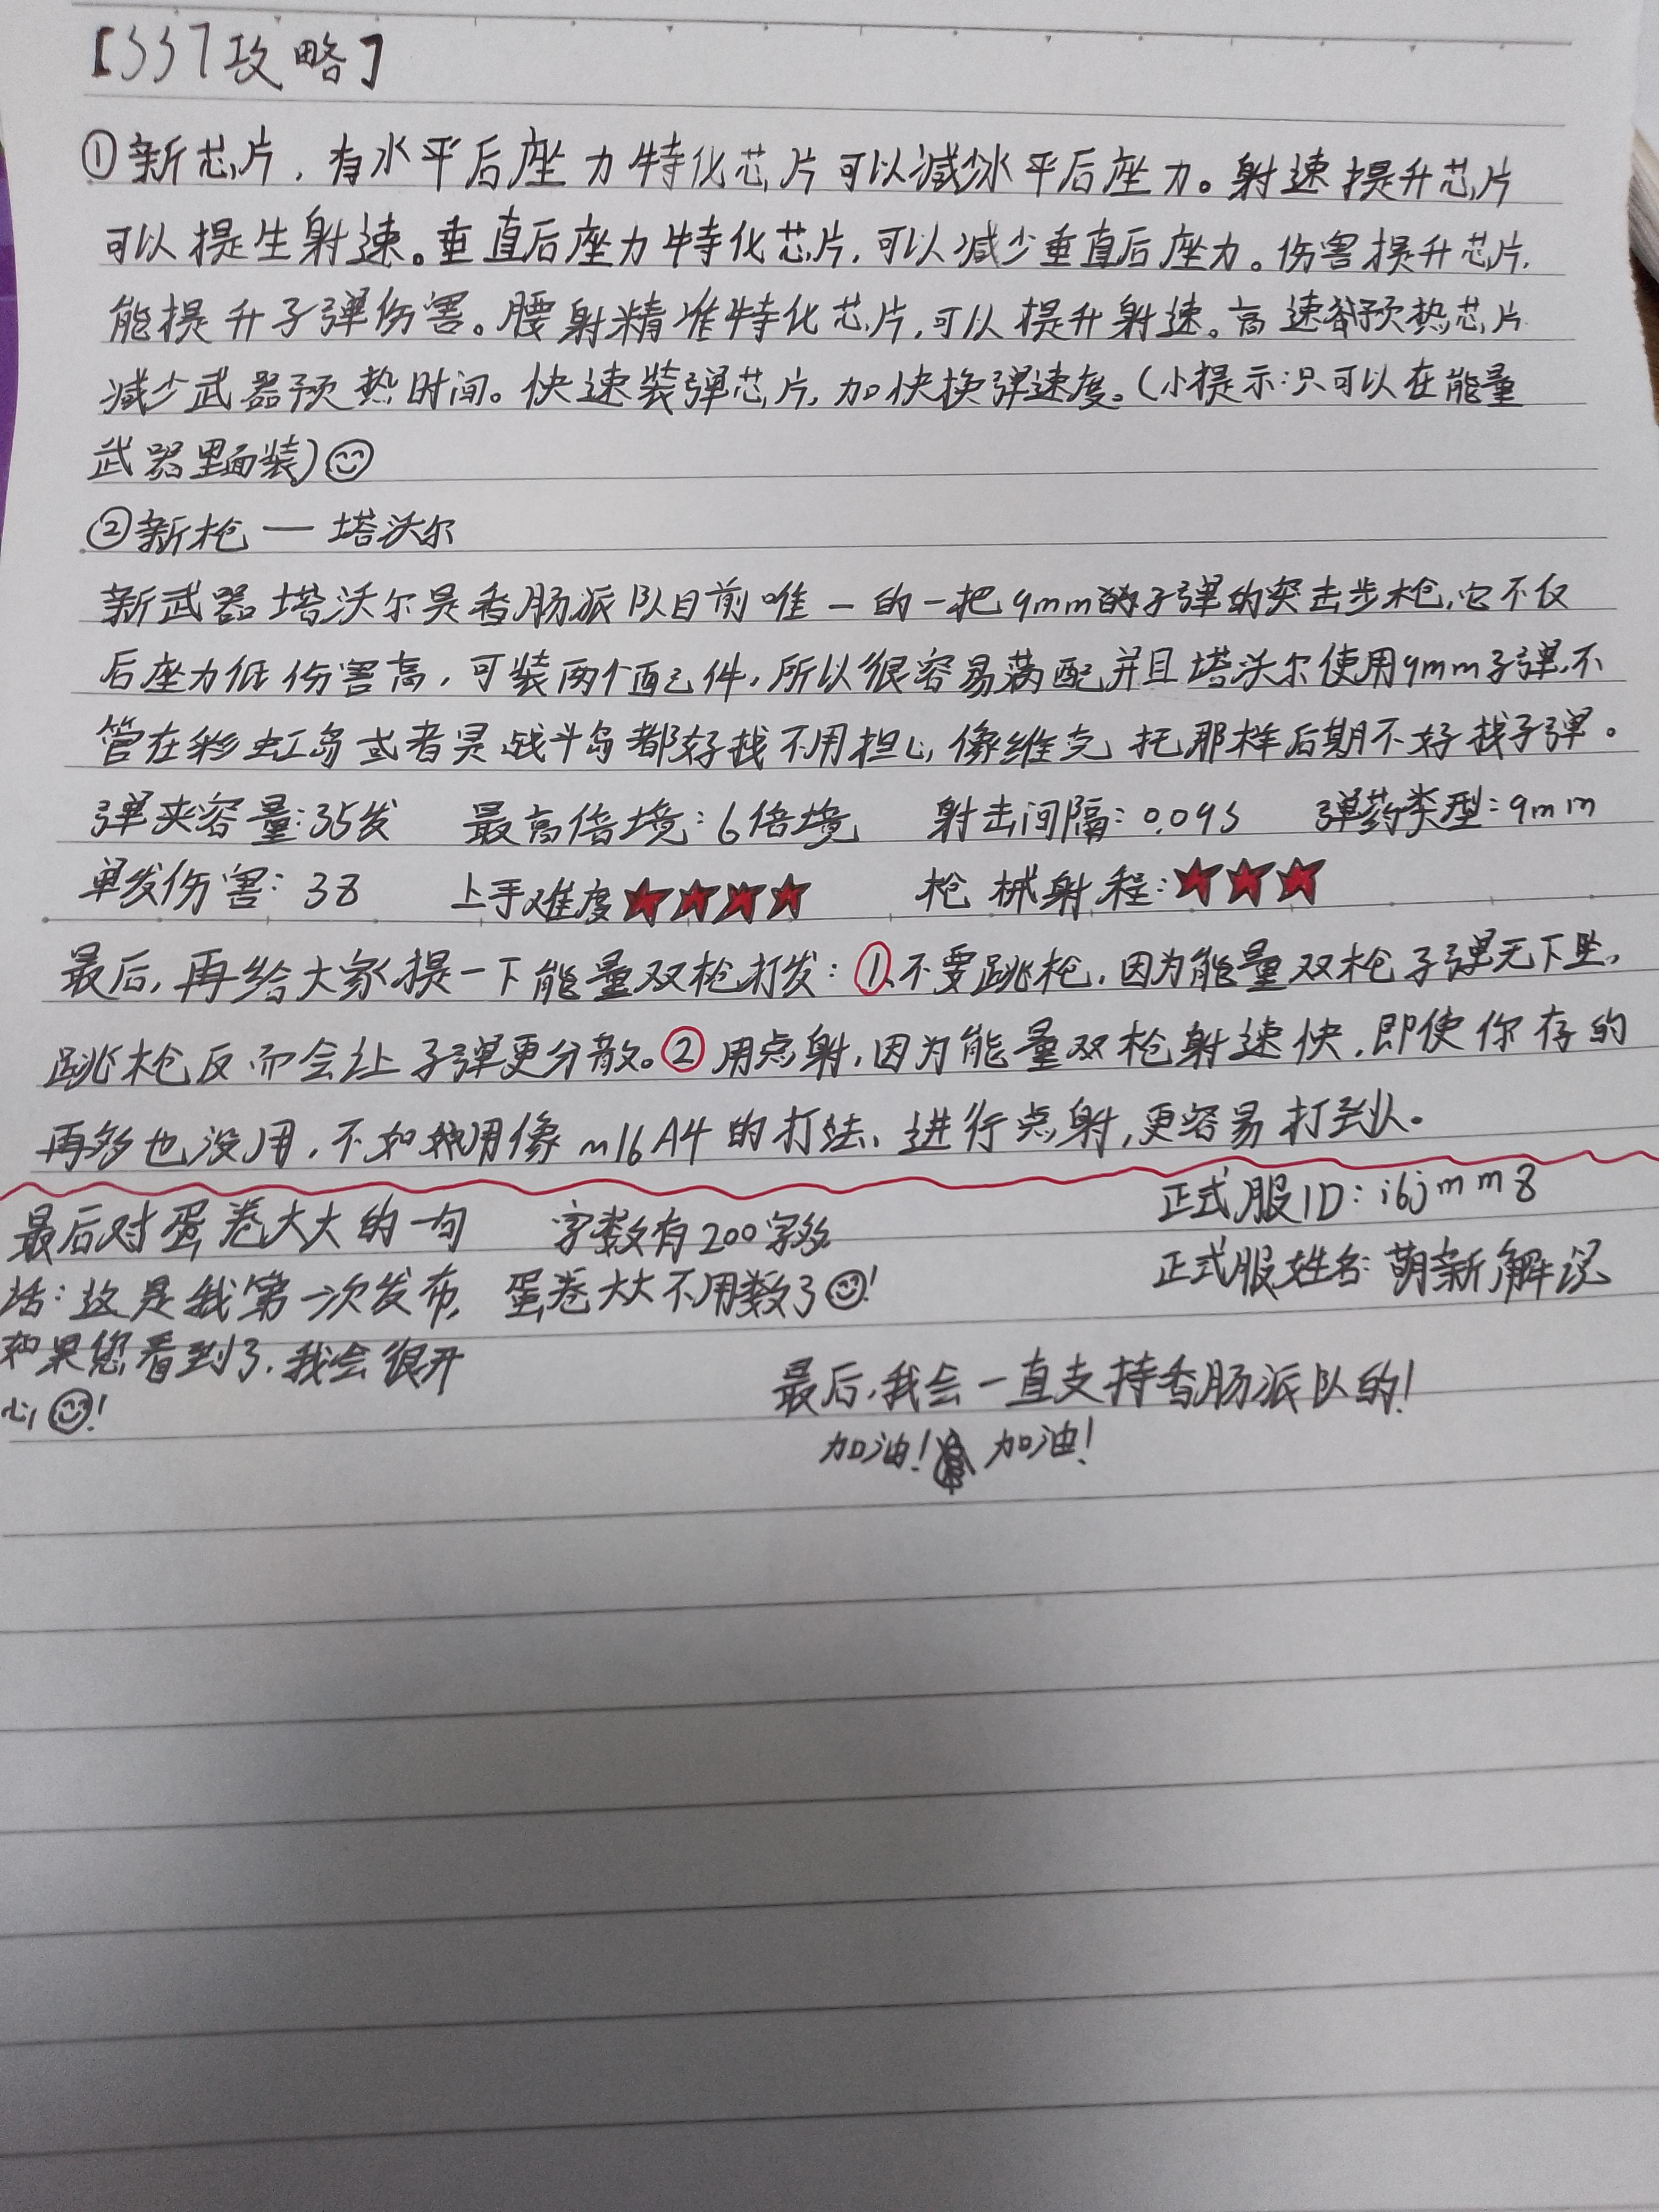 【337攻略】
①新芯片，有水平后座力特化芯片可以减少水平后座力。射速提升芯片
可以提生射速。垂直后座力特化芯片，可以减少垂直后座力。伤害提升芯片，
能提升子弹伤害。腰射精准特化芯片，可以提升射速。高速预热芯片
减少武器预热时间。快速装弹芯片，加快换弹速度。（小提示：只可以在能量
武器里面装）
②新枪一塔沃尔
新武器塔沃尔是香肠派队目前唯一的一把9mm的子弹的突击步枪，它不仅
后座力低伤害高，可装两个配件，所以很容易满配并且塔沃尔使用9mm子弹，不
管在彩虹岛或者灵战斗岛都好找不用担心，像维克托那样后期不好找子弹。
弹夹容量：35发 最高倍境：6倍境 射击间隔：0.09s 弹药类型：9mm
单发伤害：38 上手难度★★★★ 枪械射程：★★★
最后，再给大家提一下能量双枪打发：①不要跳枪，因为能量双枪子弹无下坠，
跳枪反而会让子弹更分散。②用点射，因为能量双枪射速快，即使你存的
再多也没用，不如用像m16A4的打法、进行点射，更容易打到头。
最后对蛋卷大大的一句
话：这是我第一次发布，
如果您看到了，我会很开
心！
字数有200字多
蛋卷大大不用数了！
正式服ID：i6jmm8
正式服姓名：萌新解说
最后，我会一直支持香肠派队的！
加油！加油！